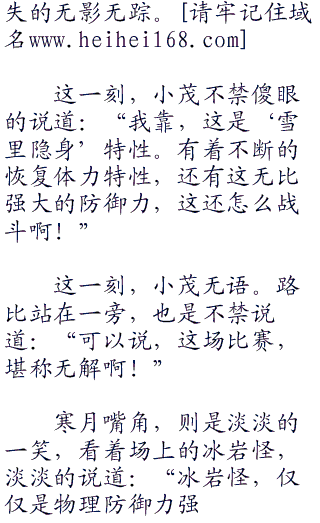 失的无影无踪。[请牢记住域
名www.heihei168.com]
这一刻，小茂不禁傻眼
的说道：“我靠，这是‘雪
里隐身’特性。有着不断的
恢复体力特性，还有这无比
强大的防御力，这还怎么战
斗啊！”
这一刻，小茂无语。路
比站在一旁，也是不禁说
道：“可以说，这场比赛，
堪称无解啊！”
寒月嘴角，则是淡淡的
一笑，看着场上的冰岩怪，
淡淡的说道：“冰岩怪，仅
仅是物理防御力强